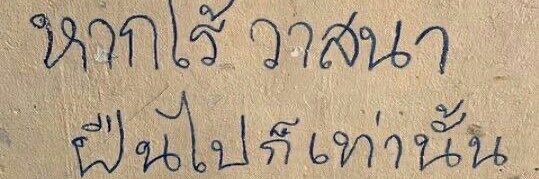 หากไร้ วาสนา
ฝืนไปก็เท่านั้น